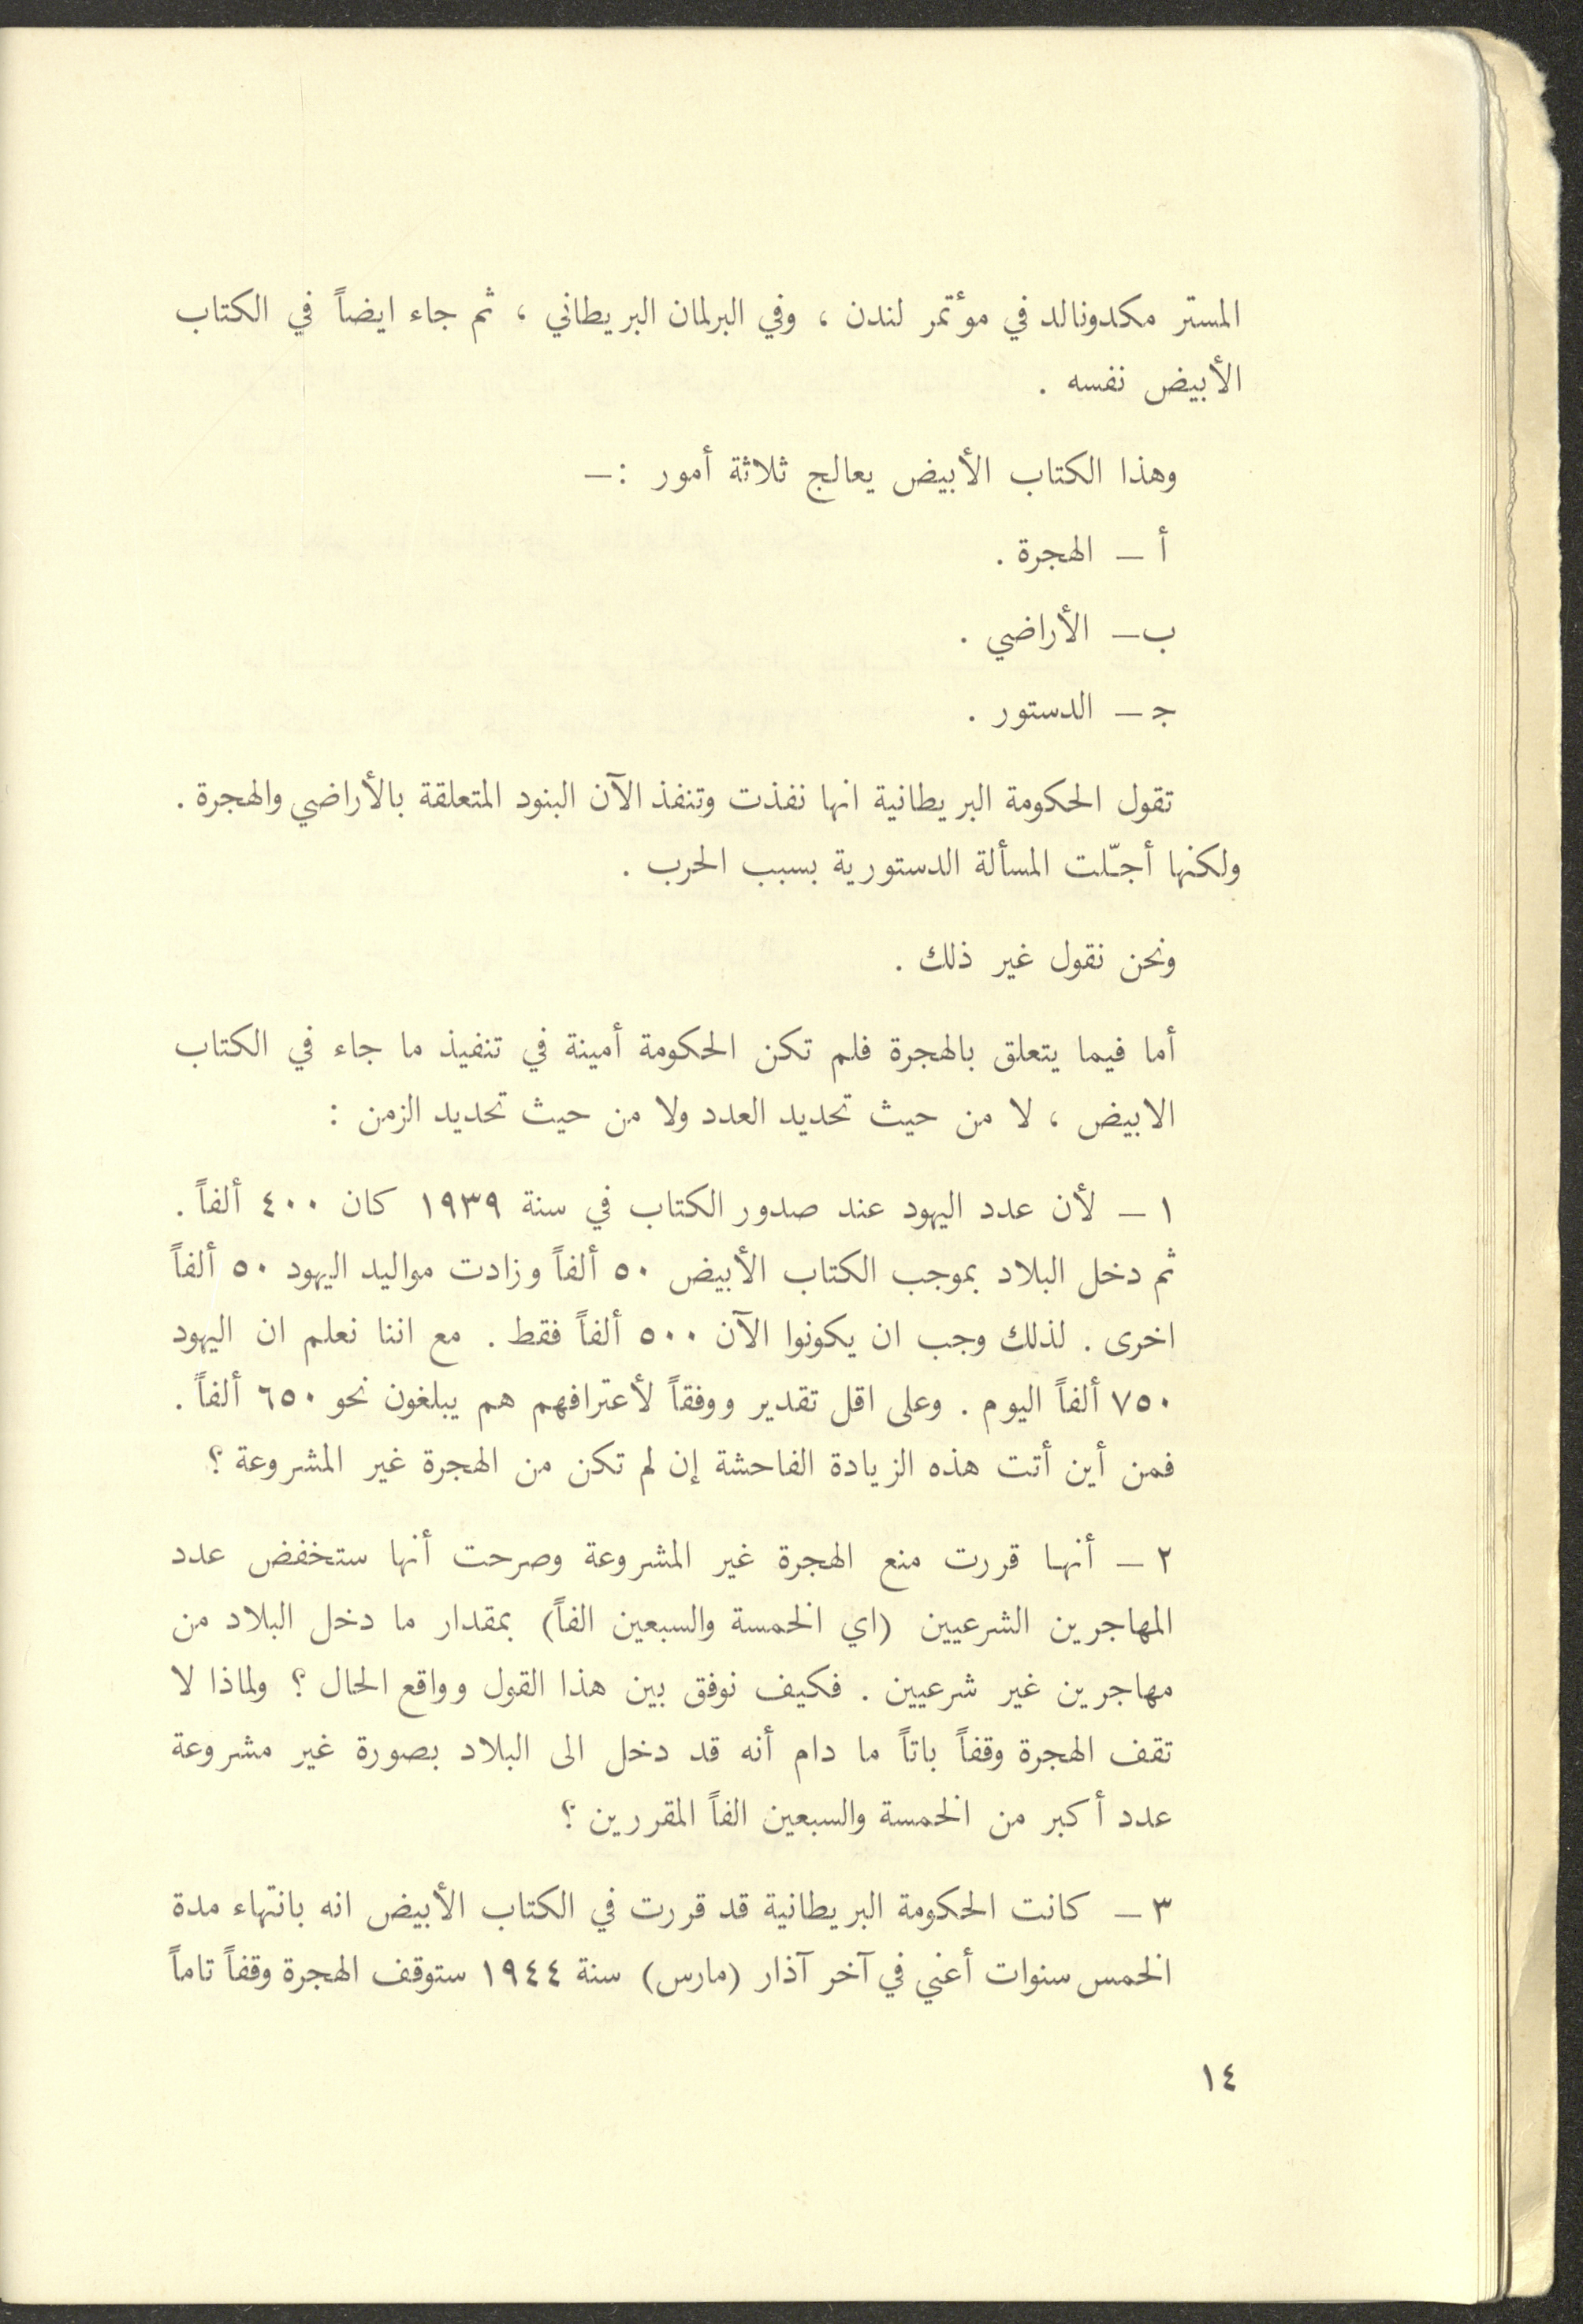 المستر مكدونالد في مؤتمر لندن ، وفي البرلمان البريطاني ، ثم جاء ايضاً في الكتاب
الأبيض نفسه .
وهذا الكتاب الأبيض يعالج ثلاثة أمور :ــ
أ ــ الهجرة .
ب ــ الأراضي .
جـ ــ الدستور .
تقول الحكومة البريطانية انها نفذت وتنفذ الآن البنود المتعلقة بالأراضي والهجرة .
ولكنها أجّلت المسألة الدستورية بسبب الحرب .
ونحن نقول غير ذلك .
أما فيما يتعلق بالهجرة فلم تكن الحكومة أمينة في تنفيذ ما جاء في الكتاب
الابيض ، لا من حيث تحديد العدد ولا من حيث تحديد الزمن :
١ ــ لأن عدد اليهود عند صدور الكتاب في سنة ١٩٣٩ كان ٤٠٠ ألفاً .
ثم دخل البلاد بموجب الكتاب الأبيض ٥٠ ألفاً وزادت مواليد اليهود ٥٠ ألفاً
اخرى . لذلك وجب ان يكونوا الآن ٥٠٠ ألفاً فقط . مع اننا نعلم ان اليهود
٧٥٠ ألفاً اليوم . وعلى اقل تقدير ووفقاً لأعترافهم هم يبلغون نحو ٦٥٠ ألفاً .
فمن أين أتت هذه الزيادة الفاحشة إن لم تكن من الهجرة غير المشروعة ؟
٢ ــ أنها قررت منع الهجرة غير المشروعة وصرحت أنها ستخفض عدد
المهاجرين الشرعيين (اي الخمسة والسبعين الفاً) بمقدار ما دخل البلاد من
مهاجرين غير شرعيين . فكيف نوفق بين هذا القول وواقع الحال ؟ ولماذا لا
تقف الهجرة وقفاً باتاً ما دام أنه قد دخل الى البلاد بصورة غير مشروعة
عدد أكبر من الخمسة والسبعين الفاً المقررين ؟
٣ ــ كانت الحكومة البريطانية قد قررت في الكتاب الأبيض انه بانتهاء مدة
الخمس سنوات أعني في آخر آذار (مارس) سنة ١٩٤٤ ستوقف الهجرة وقفاً تاماً
١٤